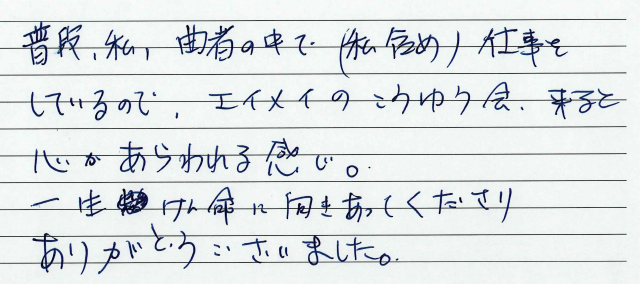 普段、私、曲者の中で(私含め)仕事を
しているので、エイメイのこうゆう会、来ると
心があらわれる感じ。
一生けん命に向きあってくださり
ありがとうございました。